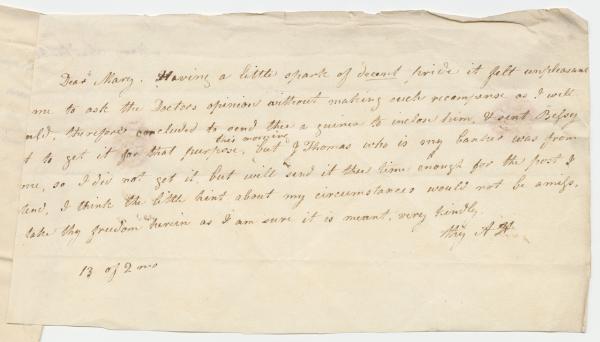 Dear Mary. Having a little spark of decent pride it felt unpleasant
me to ask the Doctors opinion without making such recompense as I well
uld, therefore concluded to send thee a guinea to inclose him, & sent Betsey
this morning
t to get it for that purpose, but J Thomas who is my banker was from
me, so I did not get it, but will send it thee time enough for the post I
tend, I think the little hint about my circumstances would not be amiss,
take thy freedom herein as I am sure it is meant, very kindly.
thy A H
13 of 2 mo